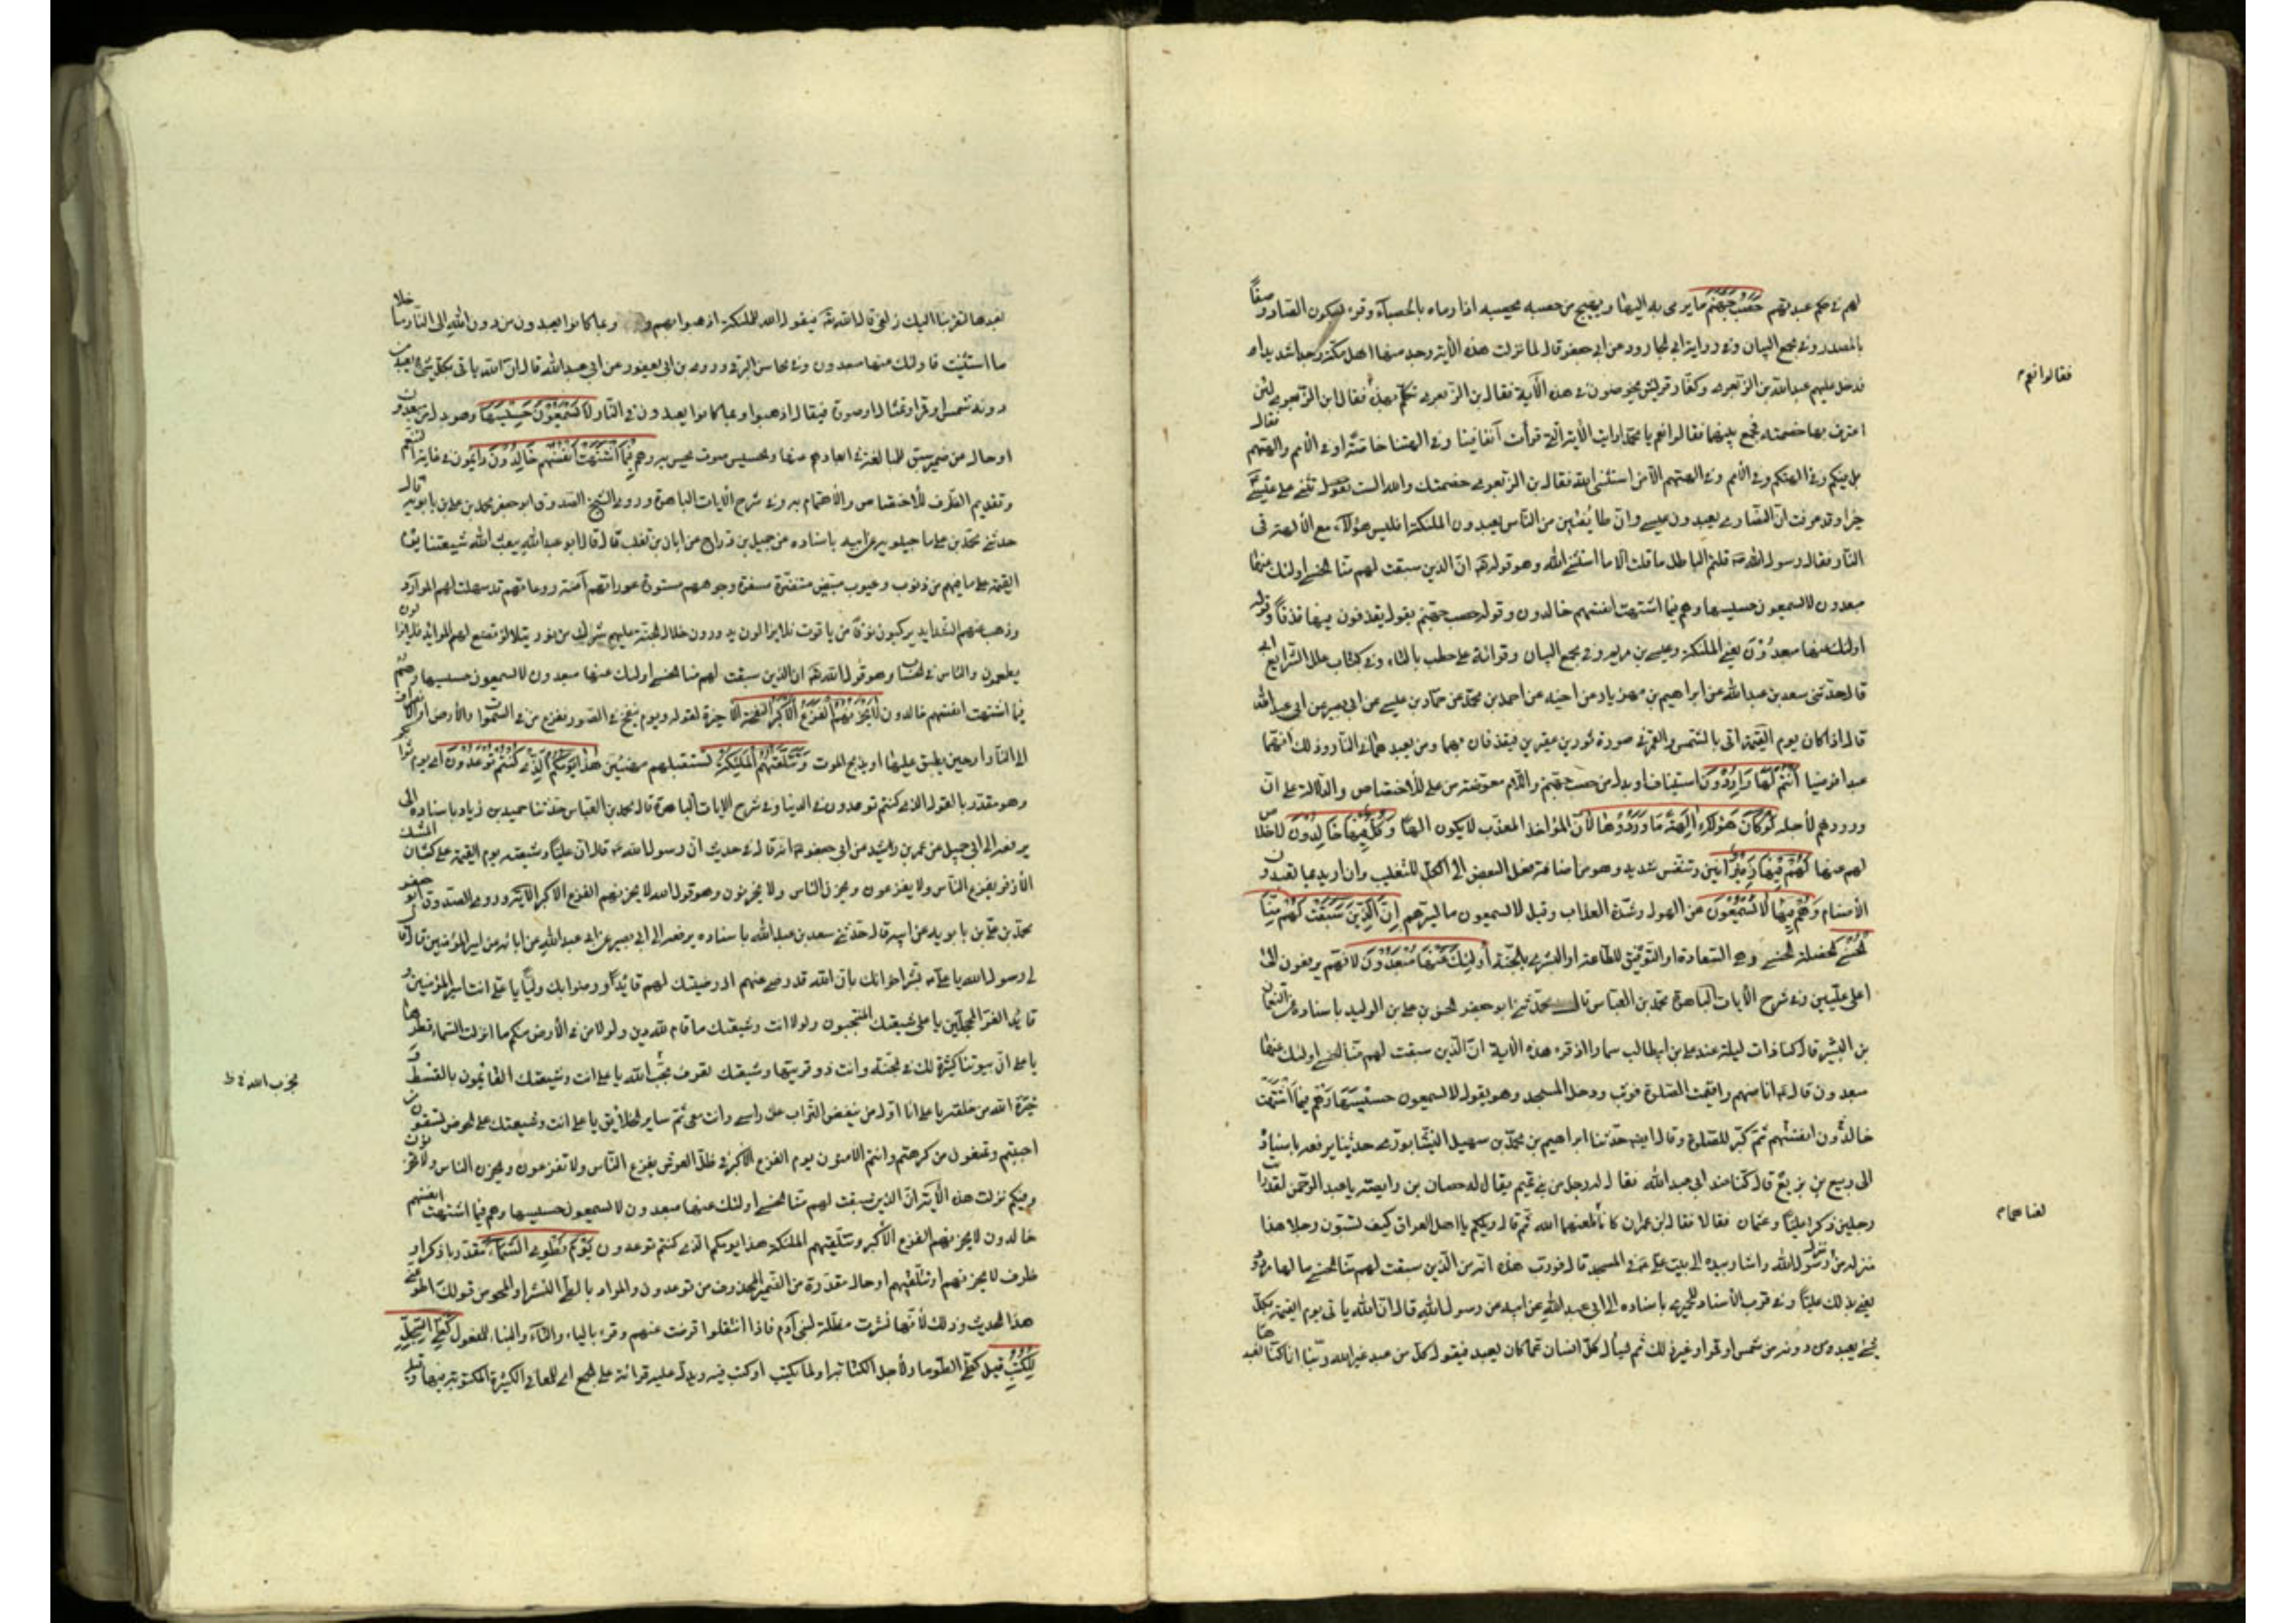 لهم في حكم عبدتهم حَصَبُ جَهَنَّمَ ما يرمى به اليها ويهيج من حصبه يحصبه اذا رماه بالحصباء وقرء بسكون الصاد وصفًا
بالمصدر وفي مجمع البيان وفي رواية ابي الجارود عن ابي جعفر قال لما نزلت هذه الآية وجد منها اهل مكة وجدا شديدا
فدخل عليهم عبدالله بن الزبعرى وكفار قريش يخوضون في هذه الآية فقال بن الزبعرى تكلم بهذا فقال ابن الزبعرى لئن
اعترف بها خصمته فجمع بينهما فقالوا نعم يا محمد ارايت الآية التي قرأت آنفا فينا وفي الهتنا خاصة او في الأمم والهتهم فقال
بل فيكم وفي الهتكم وفي الأمم وفي الهتهم الا من استثنى الله فقال بن الزبعرى خصمتك والله الست تقول تثني على عيسى
خيرا وقد عرفت ان النصارى يعبدون عيسى وان طائفتين من الناس يعبدون الملئكة افليس هؤلاء مع الألهة في
النار فقال رسول الله قلتم الباطل ما قلت الا ما استثنى الله وهو قوله ان الذين سبقت لهم منا الحسنى اولئك عنها
مبعدون لا يسمعون حسيسها وهم فيما اشتهت انفسهم خالدون وقوله حصب جهنم يقول يقذفون فيها قذفًا وقوله
اولئك عنها مبعدون يعني الملئكة وعيسى بن مريم وفي مجمع البيان وقرائة علي حطب بالطاء وفي كتاب علل الشرايع ابي
قال حدثنى سعد بن عبدالله عن ابراهيم بن مهزيار عن اخيه عن احمد بن محمد عن حماد بن عيسى عن ابي بصير عن ابي عبدالله
قال اذا كان يوم القيمة اتى بالشمس والقمر في صورة ثورين عقيرين فيقذفان بهما ومن يعبدهما في النار وذلك انهما
عبدا فرضيا أَنْتُمْ لَهَا وَارِدُونَ استيناف او بدل من حصب جهنم واللام معوضة من على للأختصاص والدلالة على ان
ورودهم لأجلها لَوْ كَانَ هَؤُلَاءِ الِهَةً مَا وَرَدُوهَا لأن المؤاخذ المعذب لا يكون الهًا وَكُلٌّ فِيهَا خَالِدُونَ لا خلاص
لهم عنها لَهُمْ فِيهَا زَفِيرٌ انين وتنفس شديد وهو من اضافة فعل البعض الى الكل للتغليب وان اريد بما تعبدون
الأصنام وَهُمْ فِيهَا لَا يَسْمَعُونَ من الهول وشدة العذاب وقيل لا يسمعون ما يسرهم إِنَّ الَّذِينَ سَبَقَتْ لَهُمْ مِنَّا
الْحُسْنَى الخصلة الحسنى وهي السعادة او التوفيق للطاعة او البشرى بالجنة أُولَئِكَ عَنْهَا مُبْعَدُونَ لانهم يرفعون الى
اعلى عليين وفي شرح الآيات الباهرة محمد بن العباس قال حدثنى ابو جعفر الحسن بن علي بن الوليد باسناده عن النعمان
بن البشير قال كنا ذات ليلة عند علي بن ابيطالب سمارا اذ قرء هذه الآية ان الذين سبقت لهم منا الحسنى اولئك عنها
مبعدون قال انا منهم واقيمت الصلوة فوثب ودخل المسجد وهو يقول لا يسمعون حسيسها وهم فيما اشتهت
انفسهم خالدون ثم كبر للصلوة وقال ايضا حدثنا ابراهيم بن محمد بن سهيل النيشابوري حديثا يرفعه باسناد
الى ربيع بن بزيع قال كنا عند ابي عبدالله فقال له رجل من بني تميم يقال له حسان بن رابضة يا عبدالرحمن لقد رايت
رجلين ذكرا عليًا وعثمان فقالا فقال ابن عمر ان كانا لعنهما الله ثم قال ويلكم يا اهل العراق كيف تسبون رجلا هذا
منزله من منزل رسول الله واشار بيده الى بيت علي في المسجد قال فورب هذه انه من الذين سبقت لهم منا الحسنى ما لها مردود
يعني بذلك عليًا وفي قرب الأسناد للحميري باسناده الى ابي عبدالله عن ابيه عن رسول الله قال ان الله ياتي يوم القيمة بكل
شيء يعبد من دونه من شمس او قمر او غير ذلك ثم يسال كل انسان عما كان يعبد فيقول كل من عبد غير الله ربنا انا كنا نعبدها
فقالوا نعم
لعنا هما
نعبدها لتقربنا اليك زلفى قال الله فيقول الله للملئكة اذهبوا بهم وبما كانوا يعبدون من دون الله الى النار ما خلا
ما استثنيت فاولئك عنها مبعدون وفي محاسن البرقي وروي بن ابي يعفور عن ابي عبدالله قال ان الله ياتي بكل شيء يعبد من
دونه شمس او قمر او تمثال او صورة فيقال اذهبوا وبما كانوا يعبدون في النار لَا يَسْمَعُونَ حَسِيسَهَا وهو بدل من مبعدون
او حال من ضميره سبق للمبالغة في ابعادهم عنها والحسيس صوت يحس به وَهُمْ فِيمَا اشْتَهَتْ أَنْفُسُهُمْ خَالِدُونَ دايمون في غاية التنعم
وتقديم الظرف للأختصاص والأهتمام به وفي شرح الآيات الباهرة وروى الشيخ الصدوق ابو جعفر محمد بن علي بن بابويه قال
حدثني محمد بن علي ماجيلويه عن ابيه باسناده عن جميل بن دراج عن ابان بن تغلب قال قال ابو عبدالله يبعث الله شيعتنا يوم
القيمة على ما فيهم من ذنوب وعيوب مبيض مسفرة وجوههم مستورة عوراتهم آمنة روعاتهم قد سهلت لهم الموارد
وذهب عنهم الشدايد يركبون نوقًا من ياقوت فلا يزالون يدورون خلال الجنة عليهم شرك من نور يتلالؤ توضع لهم الموائد فلا يزالون
يطعمون والناس في الحساب وهو قول الله ان الذين سبقت لهم منا الحسنى اولئك عنها مبعدون لا يسمعون حسيسها وهم
فيما اشتهت انفسهم خالدون لَا يَحْزُنُهُمُ الْفَزَعُ الْأَكْبَرُ النفخة الأخيرة لقوله ويوم ينفخ في الصور ففزع من في السموات والأرض او الانصراف
الى النار او حين يطبق عليها او يذبح الموت وَتَتَلَقَّيهُمُ الْمَلَئِكَةُ تستقبلهم مهنئين هَذَا يَوْمُكُمُ الَّذِي كُنْتُمْ تُوعَدُونَ اي يوم ثوابكم
وهو مقدر بالقول الذي كنتم توعدون في الدنيا وفي شرح الآيات الباهرة قال محمد بن العباس حدثنا حميد بن زياد باسناده الى
يرفعه الى ابي جميل عن عمر بن رشيد عن ابي جعفر انه قال في حديث ان رسول الله قال ان عليًا وشيعته يوم القيمة على كثبان المسك
الأذفر يفزع الناس ولا يفزعون ويحزن الناس ولا يحزنون وهو قول الله لا يحزنهم الفزع الأكبر الآية وروى الصدوق ابو جعفر
محمد بن علي بن بابويه عن ابيه قال حدثني سعد بن عبدالله باسناده يرفعه الى ابي بصير عن ابي عبدالله عن ابائه عن امير المؤمنين قال قال
لي رسول الله يا علي بشر اخوانك بان الله قد رضي عنهم اذ رضيتك لهم قائدًا ورضوا بك وليًا يا علي انت امير المؤمنين و
قائد الغر المحجلين يا علي شيعتك المنتجبون ولولا انت وشيعتك ما قام لله دين ولولا من في الأرض منكم ما انزلت السماء قطرها
يا علي ان بيوتنا كثيرة لك في الجنة وانت ذو قرنيها وشيعتك تعرف بحزب الله يا علي انت وشيعتك القائمون بالقسط و
خيرة الله من خلقه يا علي انا اول من ينفض التراب عن راسه وانت معي ثم ساير الخلائق يا علي انت وشيعتك على الحوض تسقون
احبتم وتمنعون من كرهتم وانتم الآمنون يوم الفزع الأكبر في ظل العرش يفزع الناس ولا تفزعون ويحزن الناس ولا تحزنون
وفيكم نزلت هذه الآية ان الذين سبقت لهم منا الحسنى اولئك عنها مبعدون لا يسمعون حسيسها وهم فيما اشتهت انفسهم
خالدون لا يحزنهم الفزع الأكبر وتتلقيهم الملئكة هذا يومكم الذي كنتم توعدون يَوْمَ نَطْوِي السَّمَاءَ مقدر باذكر او
ظرف لا يحزنهم او تتلقيهم او حال مقدرة من الضمير المحذوف من توعدون والمراد بالطي النشر او المحو من قولك اطو عني
هذا الحديث وذلك لأنها نشرت مظلة لبني آدم فاذا انتقلوا قوضت عنهم وقرء بالياء والتاء والبناء للمفعول كَطَيِّ السِّجِلِّ
لِلْكُتُبِ قيل كطي الطومار لأجل الكتابة او لما يكتب او كتب فيه ويدل عليه قرائة على الجمع اي للمعاني الكثيرة المكتوبة فيها وقيل
بحزب الله ظ